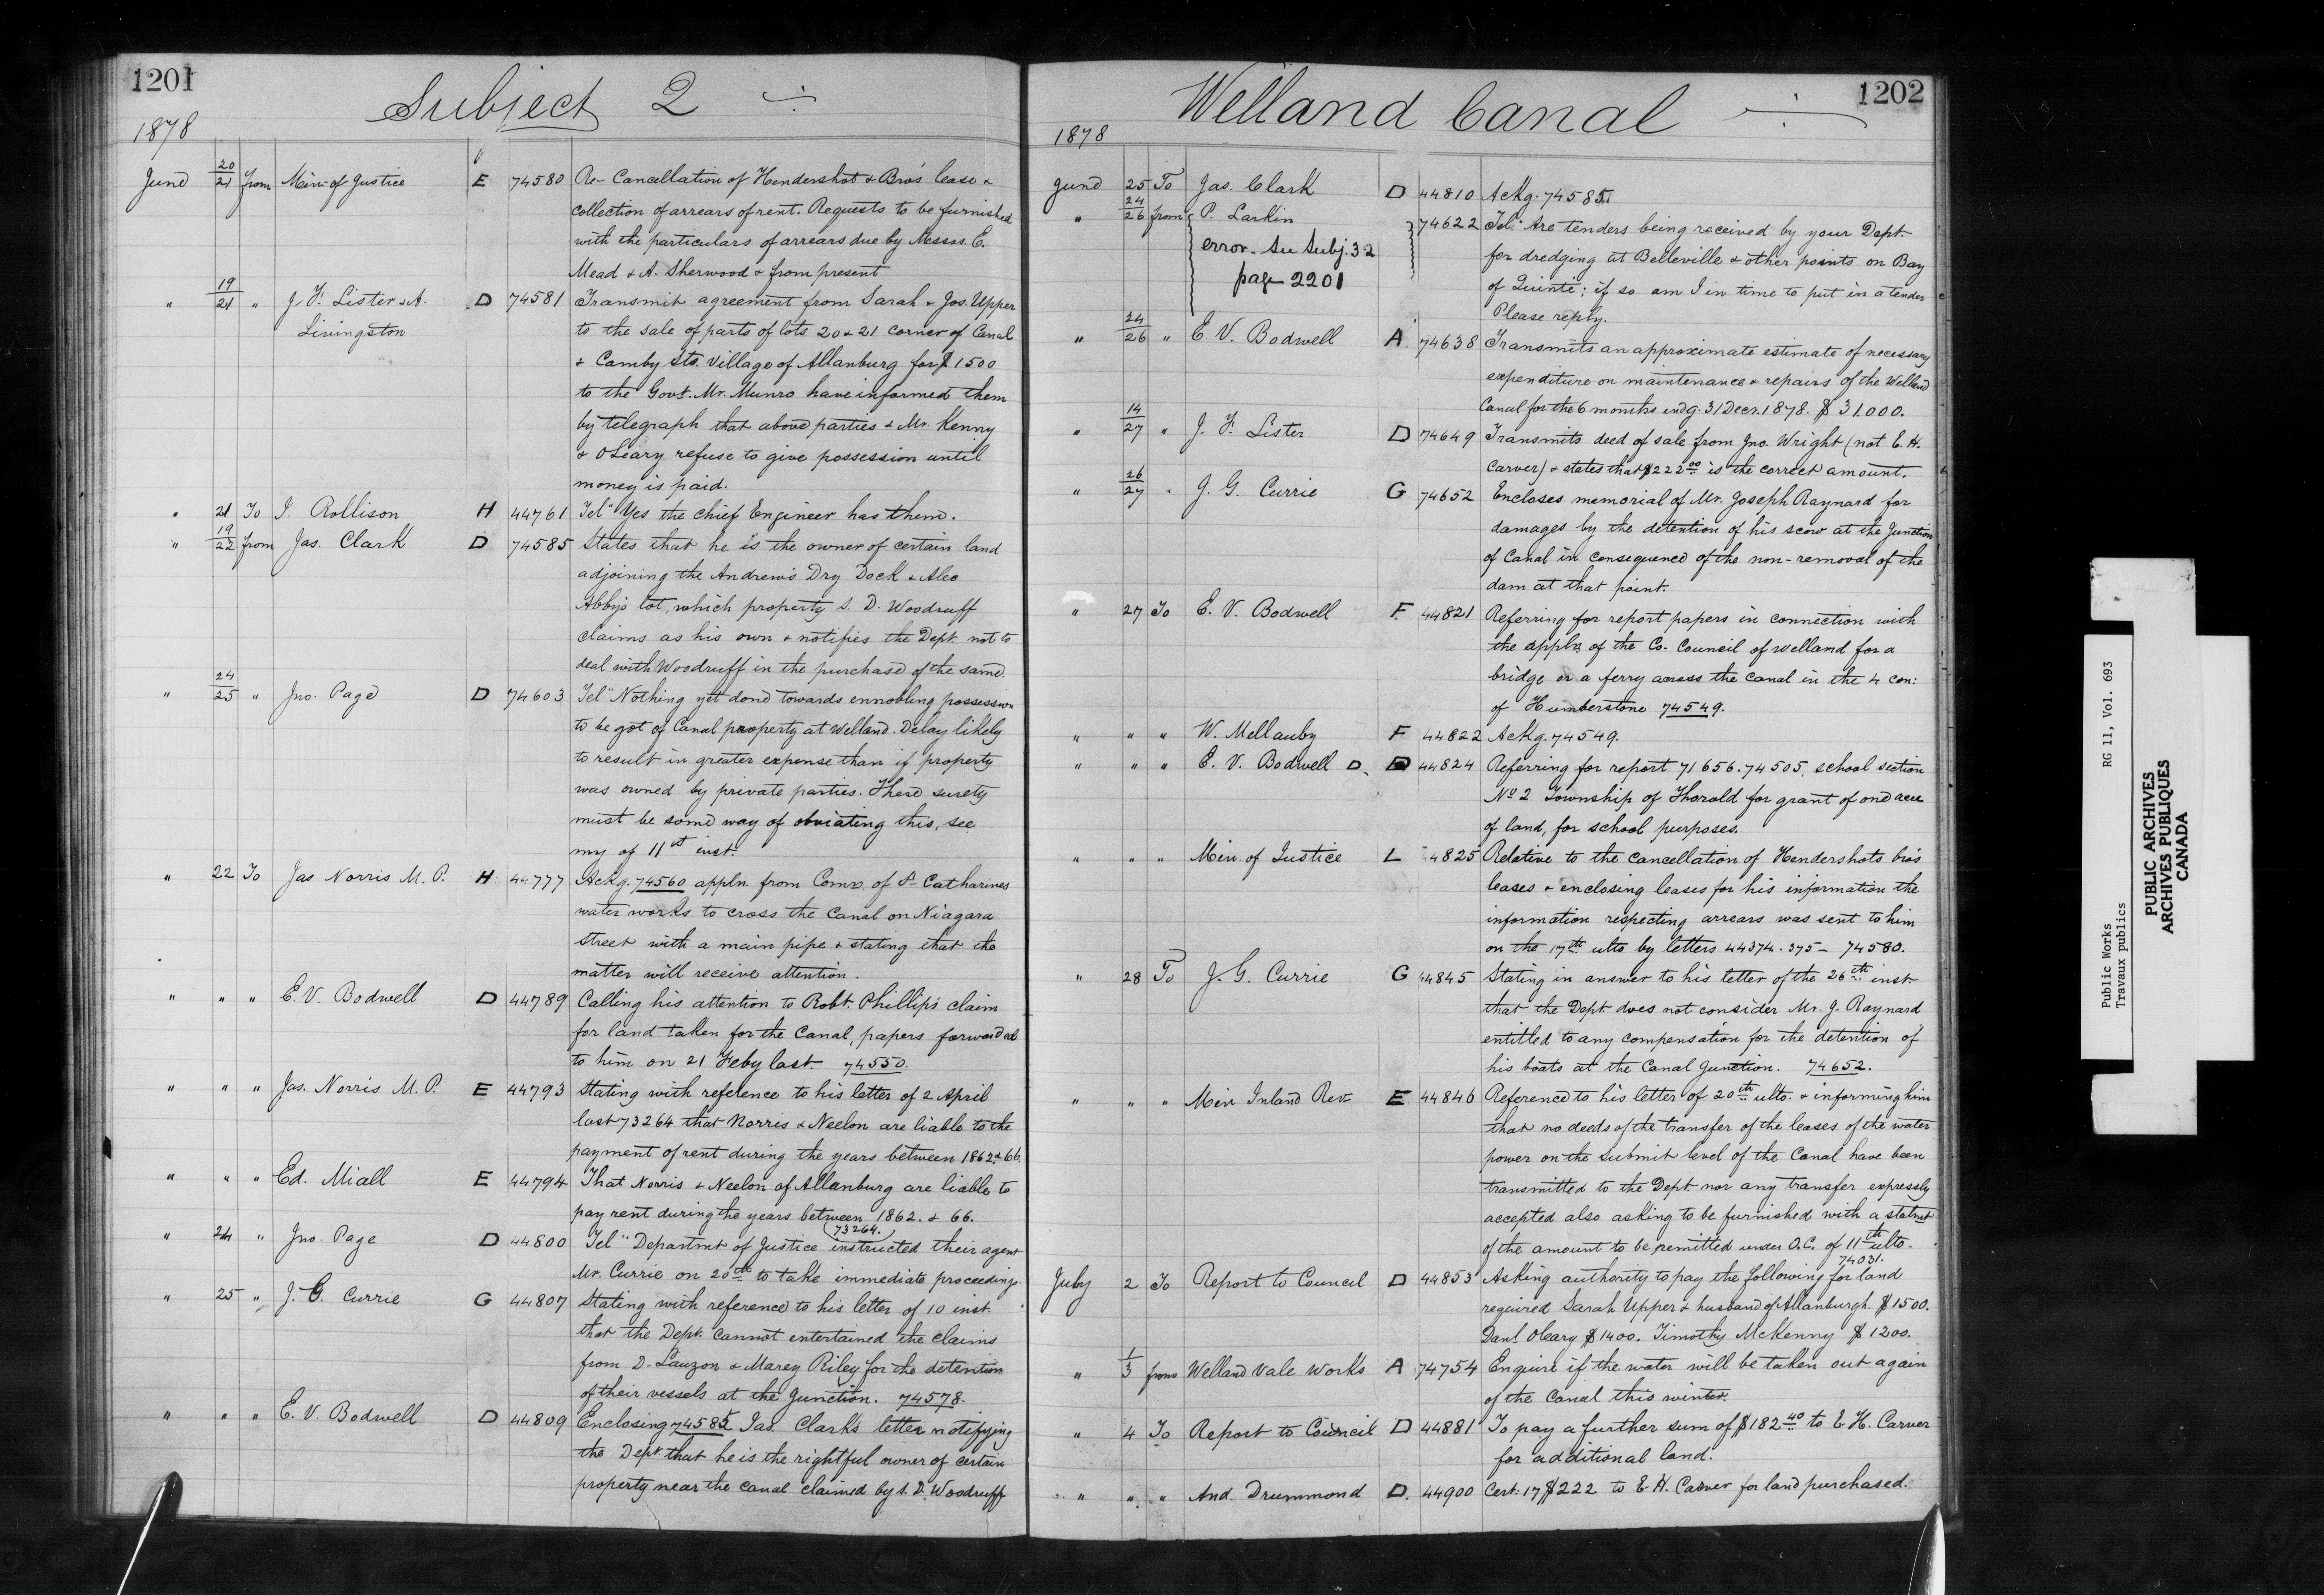 1201
Subject 2
1878
June 20/21 from Min. of Justice E 74580 Re- Cancellation of Hendershot & Bro's lease &
collection of arrears of rent. Requests to be furnished
with the particulars of arrears due by Messrs. E.
Mead & A. Sherwood & from present
" 19/21 " J. F. Lister & A. D 74581 Transmit agreement from Sarah & Jos. Upper
Livingston to the sale of parts of lots 20 & 21 corner of Canal
& Camby Sts. Village of Allanburg for $1500
to the Govt. Mr. Munro have informed them
by telegraph that above parties & Mr. Kenny
& O'Leary refuse to give possession until
money is paid.
" 21 To J. Rollison H 44761 Tel" Yes the chief Engineer has them.
" 19/22 from Jas. Clark D 74585 States that he is the owner of certain land
adjoining the Andrew's Dry Dock & Alec
Abby's lot, which property S. D. Woodruff
claims as his own & notifies the Dept. not to
deal with Woodruff in the purchase of the same.
" 24/25 " Jno. Page D 74603 Tel" Nothing yet done towards ennobling possession
to be got of Canal property at Welland. Delay likely
to result in greater expense than if property
was owned by private parties. There surety
must be some way of obviating this, see
my of 11st inst.
" 22 To Jas Norris M. P. H 44777 Ackg. 74560 appln. from Comrs. of St Catharines
water works to cross the Canal on Niagara
Street with a main pipe & stating that the
matter will receive attention.
" " " E. V. Bodwell D 44789 Calling his attention to Robt. Phillip's claim
for land taken for the Canal, papers forwarded
to him on 21 Feby last. 74550.
" " " Jas. Norris M. P. E 44793 Stating with reference to his letter of 2 April
last 73264 that Norris & Neelon are liable to the
payment of rent during the years between 1862 & 66.
" " " Ed. Miall E 44794 That Norris & Neelon of Allanburg are liable to
pay rent during the years between 1862. & 66.
73264.
" 24 " Jno. Page D 44800 Tel" Departmt of Justice instructed their agent
Mr. Currie on 20th to take immediate proceedings
" 25 " J. G. Currie G 44807 Stating with reference to his letter of 10 inst.
that the Dept. cannot entertained the claims
from D. Lauzon & Marey Riley for the detention
of their vessels at the Junction. 74578.
" " " E. V. Bodwell D 44809 Enclosing 74585 Jas. Clark's letter notifying
the Dept. that he is the rightful owner of certain
property near the canal claimed by S. D. Woodruff
1202
Welland Canal
1878
June 25 To Jas. Clark D 44810 Ackg. 74585.
" 24/26 from P. Larkin 74622 Tel" Are tenders being received by your Dept.
error. See Subj. 32 for dredging at Belleville & other points on Bay
page 2201 of Quinte; if so am I in time to put in a tender
Please reply.
" 24/26 " E. V. Bodwell A. 74638 Transmits an approximate estimate of necessary
expenditure on maintenance & repairs of the Welland
Canal for the 6 months endg. 31 Decr. 1878. $31.000.
" 14/27 " J. F. Lister D 74649 Transmits deed of sale from Jno. Wright (not E. H.
Carver) & states that $222.00 is the correct amount.
" 26/27 " J. G. Currie G 74652 Encloses memorial of Mr. Joseph Raynard for
damages by the detention of his scow at the Junction
of Canal in consequence of the non-removal of the
dam at that point.
" 27 To E. V. Bodwell F. 44821 Referring for report papers in connection with
the appln. of the Co. Council of Welland for a
bridge or a ferry across the canal in the 4 con:
of Humberstone 74549.
" " " W. Mellanby F 44822 Ackg. 74549.
" " " E. V. Bodwell D. 44824 Referring for report 71656. 74505, school section
No 2 Township of Thorold for grant of one acre
of land, for school purposes.
" " " Min. of Justice L 44825 Relative to the cancellation of Hendershots bro's
leases & enclosing leases for his information the
information respecting arrears was sent to him
on the 17th ulto by letters 44374. 375 - 74580.
" 28 To J. G. Currie G 44845 Stating in answer to his letter of the 26th inst.
that the Dept. does not consider Mr. J. Raynard
entitled to any compensation for the detention of
his boats at the Canal Junction. 74652.
" " " Min Inland Rev. E 44846 Reference to his letter of 20th ulto. & informing him
that no deeds of the transfer of the leases of the water
power on the submit level of the Canal have been
transmitted to the Dept. nor any transfer expressly
accepted also asking to be furnished with a statmt
of the amount to be remitted under O.C. of 11th ulto.
74031.
July 2 To Report to Council D 44853 Asking authority to pay the following for land
required Sarah Upper & husband of Allanburgh. $1500.
Danl. Oleary $1400. Timothy McKenny $1200.
" 1/3 from Welland Vale Works A 74754 Enquire if the water will be taken out again
of the Canal this winter.
" 4 To Report to Council D 44881 To pay a further sum of $182.40 to E. H. Carver
for additional land.
" " " And. Drummond D. 44900 Cert. 17 $222 to E. H. Carver for land purchased.
Public Works RG 11, Vol. 693
Travaux publics
PUBLIC ARCHIVES
ARCHIVES PUBLIQUES
CANADA